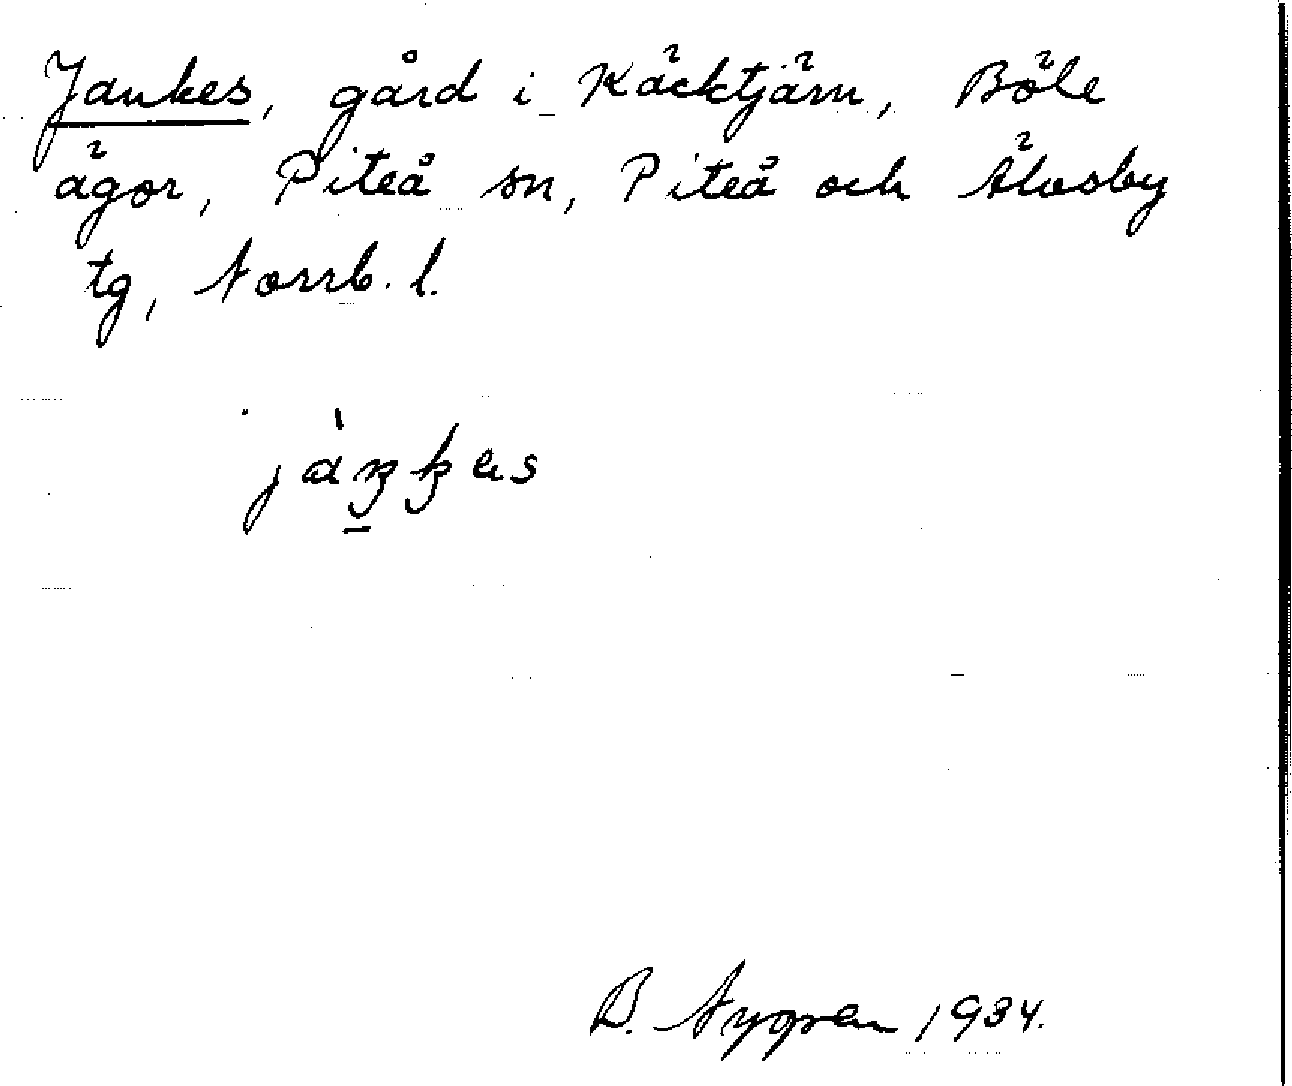 Jankes, gård i Käcktjärn, Böle
ägor, Piteå sn, Piteå och Älvsby
tg, Norrb. l.
B. Nygren 1934.